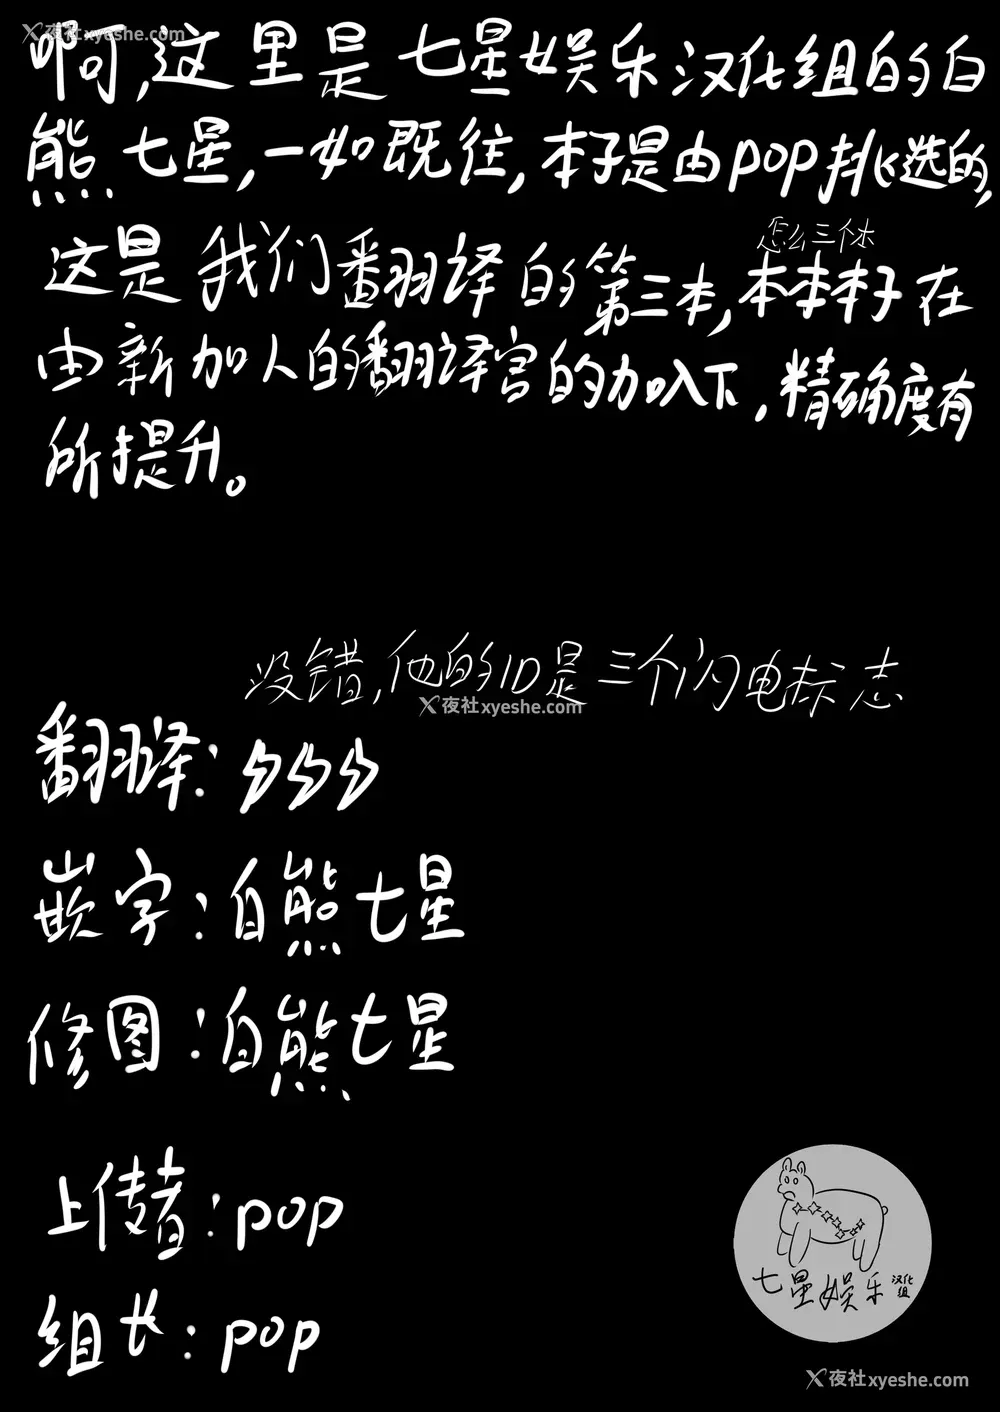 夜社xyeshe.com
夜社xyeshe.com
啊,这里是七星娱乐汉化组的白
熊七星,一如既往,本子是由pop挑选的,
怎么三个本
这是我们翻译的第三本,本本本子在
由新加入的翻译官的加入下,精确度有
所提升。
没错,他的ID是三个闪电标志
夜社xyeshe.com
翻译:
嵌字:白熊七星
修图:白熊七星
上传者:pop
组长:pop
七星娱乐汉化组
夜社xyeshe.com